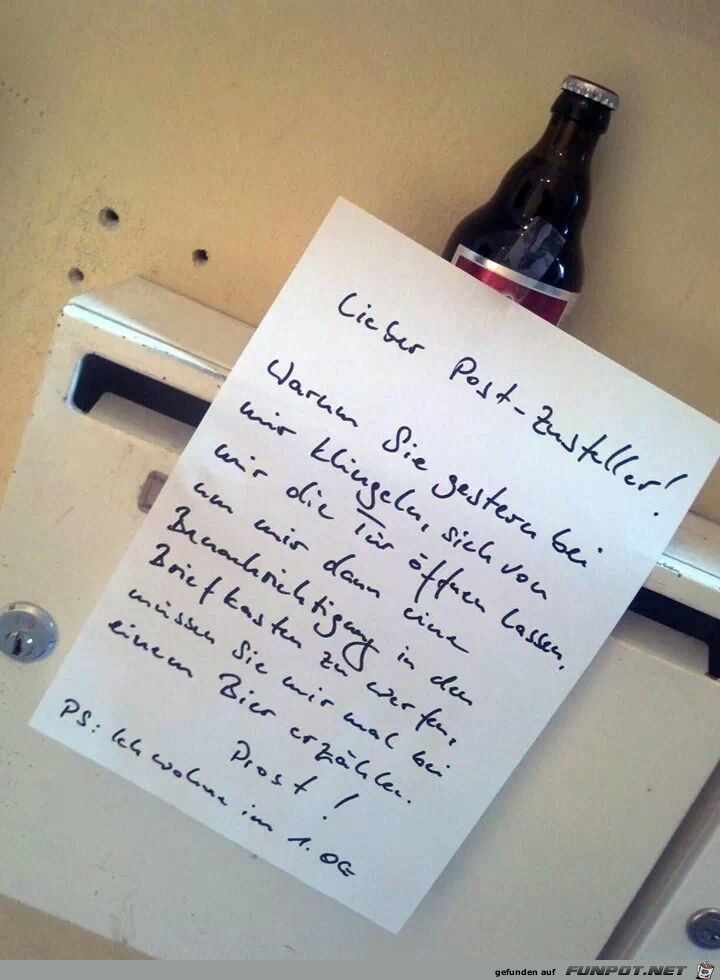 Lieber Post-Zusteller!
Warum Sie gestern bei
mir klingeln, sich von
mir die Tür öffnen lassen,
um mir dann eine
Benachrichtigung in den
Briefkasten zu werfen,
müssen Sie mir mal bei
einem Bier erzählen.
Prost!
PS: Ich wohne im 1. OG
gefunden auf FUNPOT.NET